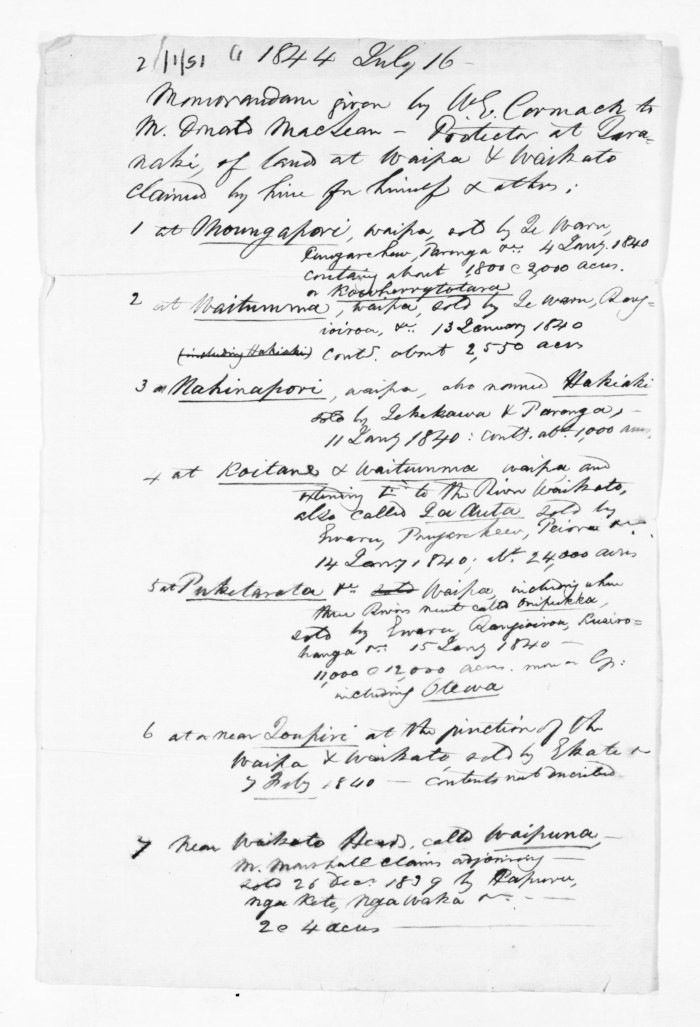 2/1/51 1844 July 16 -
Memorandum given by W.E. Cormack to
Mr. Donald MacLean - Protector at Tara-
naki, of lands at Waipa & Waikato
claimed by him for himself & others;
1 at Moungapori, waipa, sold by Te Waru,
Paronga &c. 4 Jany. 1840
containg about 1800 @ 2,000 acres.
or Kowherrytotara
2 at Waitumma, waipa, sold by Te Waru, Rang-
ioiroa, &c. 13 January 1840
(including Hakiaki) conts. about 2,550 acres
3 at Nahinapori, waipa, also named Hakiaki
sold by Tekekawa & Paronga, -
11 Jany 1840: conts. abt. 1,000 acres.
4 at Koitane & Waitumma waipa and
extending to the River Waikato,
also called sold by
Ewaru, &c.
14 Jany 1840; abt. 24,000 acres
5 at Puketarata &c sold Waipa, including where
three Rivers meet called Onipukka,
sold by Ewaru, Rangioiroa, Kusiro-
hanga &c. 15 Jany 1840 -
11,000 @ 12,000 acres. more or less:
including Otewa
6 at or near Toupiri at the junction of the
Waipa & Waikato, sold by Ekate &c
7 Feby 1840 - contents not
7 Near Waikato Heads, called Waipuna, -
Mr. Marshall claims adjoining -
sold 26 Decr. 1839 by Kapuru,
nga Kete, Nga waka &c. -
2 @ 4 acres